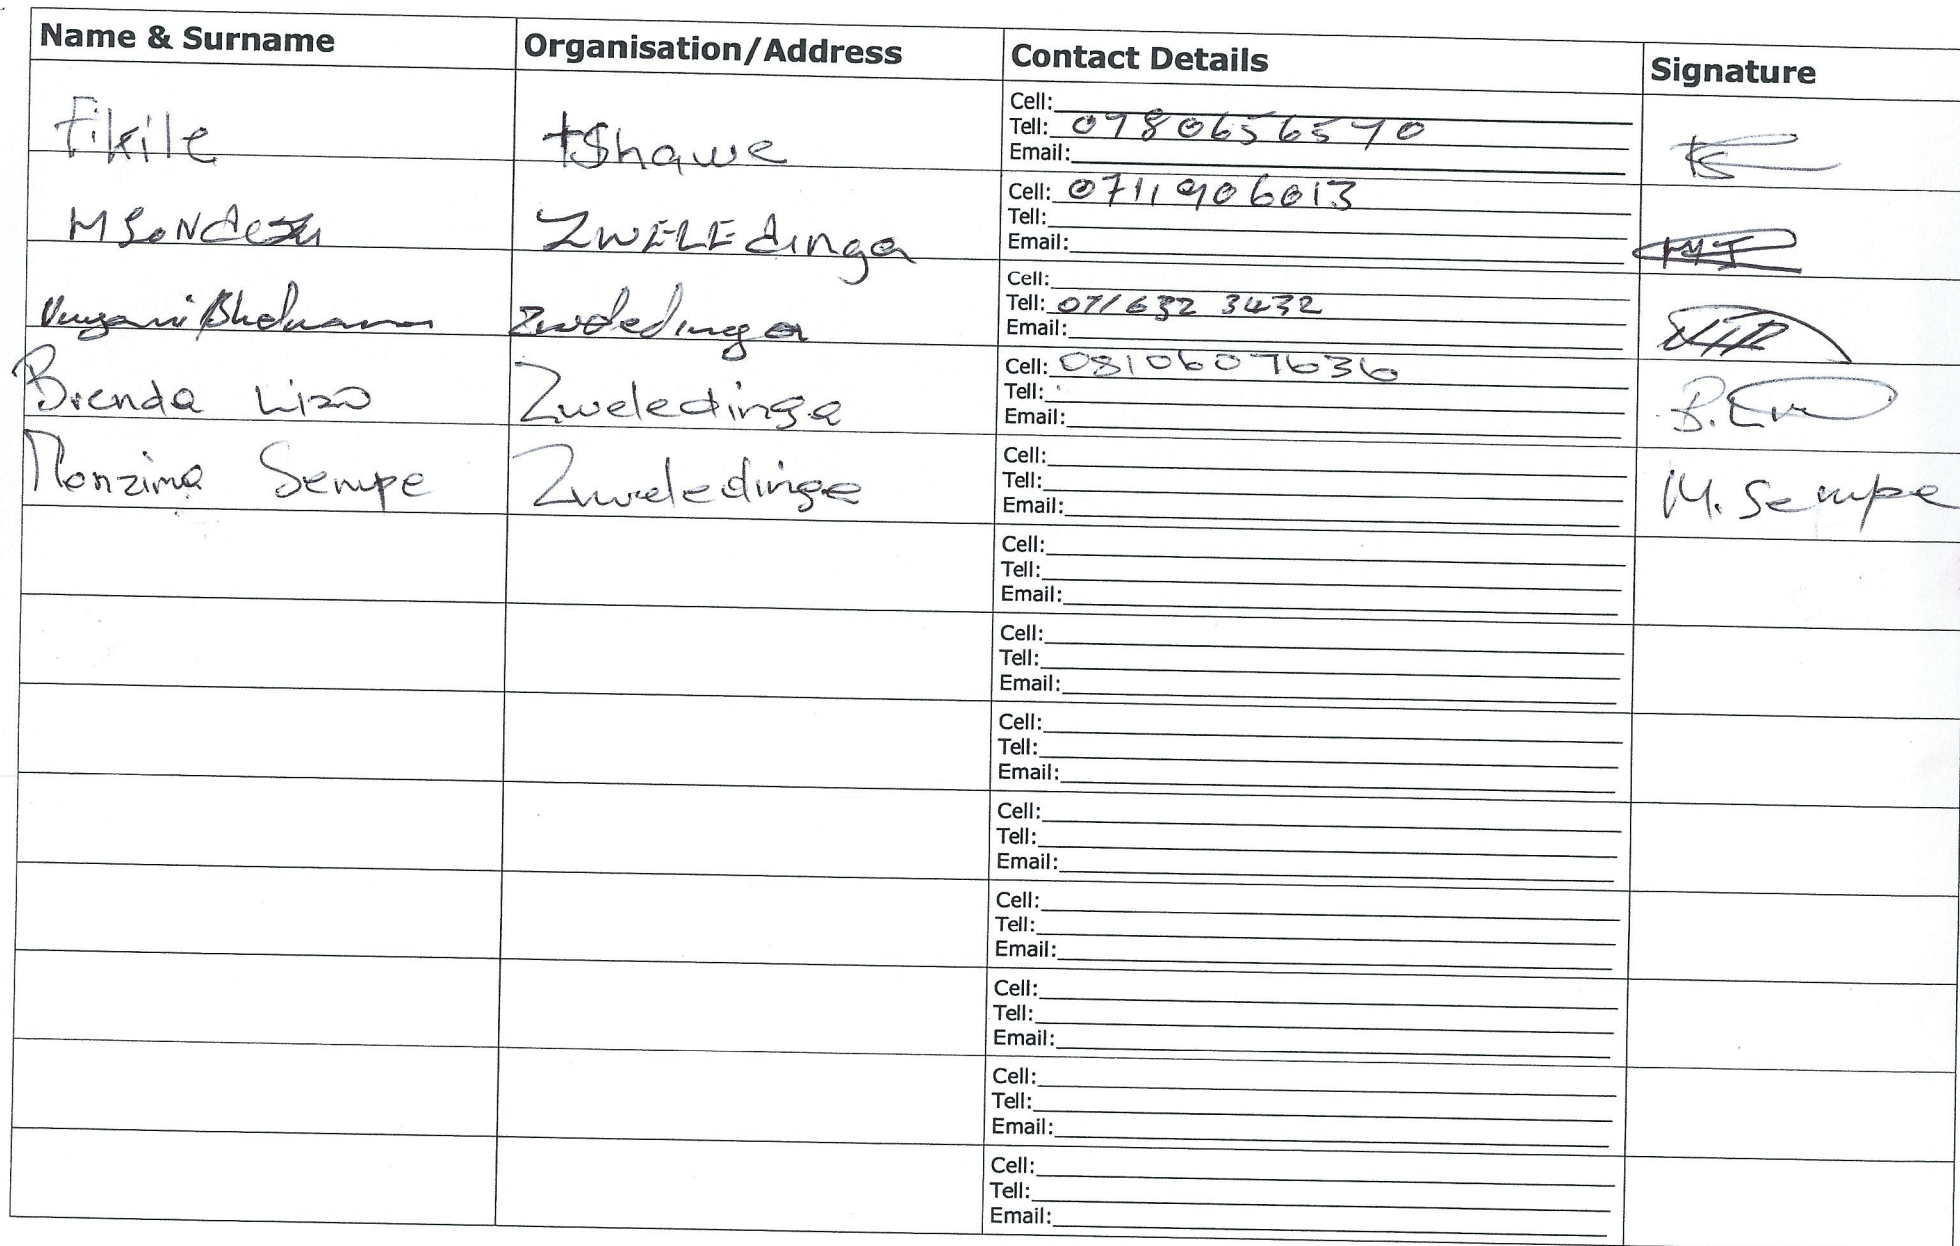 Name & Surname Organisation/Address Contact Details Signature
Fikile tShawe
Cell:
Tell: 0780656570
Email:
ZWELEdinga
Cell: 0711906013
Tell:
Email:
Zweledinga
Cell:
Tell: 071 632 3432
Email:
Brenda Liso Zweledinga
Cell: 0810607636
Tell:
Email:
Monzima Sempe Zweledinga M. Sempe
Cell:
Tell:
Email:
Cell:
Tell:
Email:
Cell:
Tell:
Email:
Cell:
Tell:
Email:
Cell:
Tell:
Email:
Cell:
Tell:
Email:
Cell:
Tell:
Email:
Cell:
Tell:
Email:
Cell:
Tell:
Email: